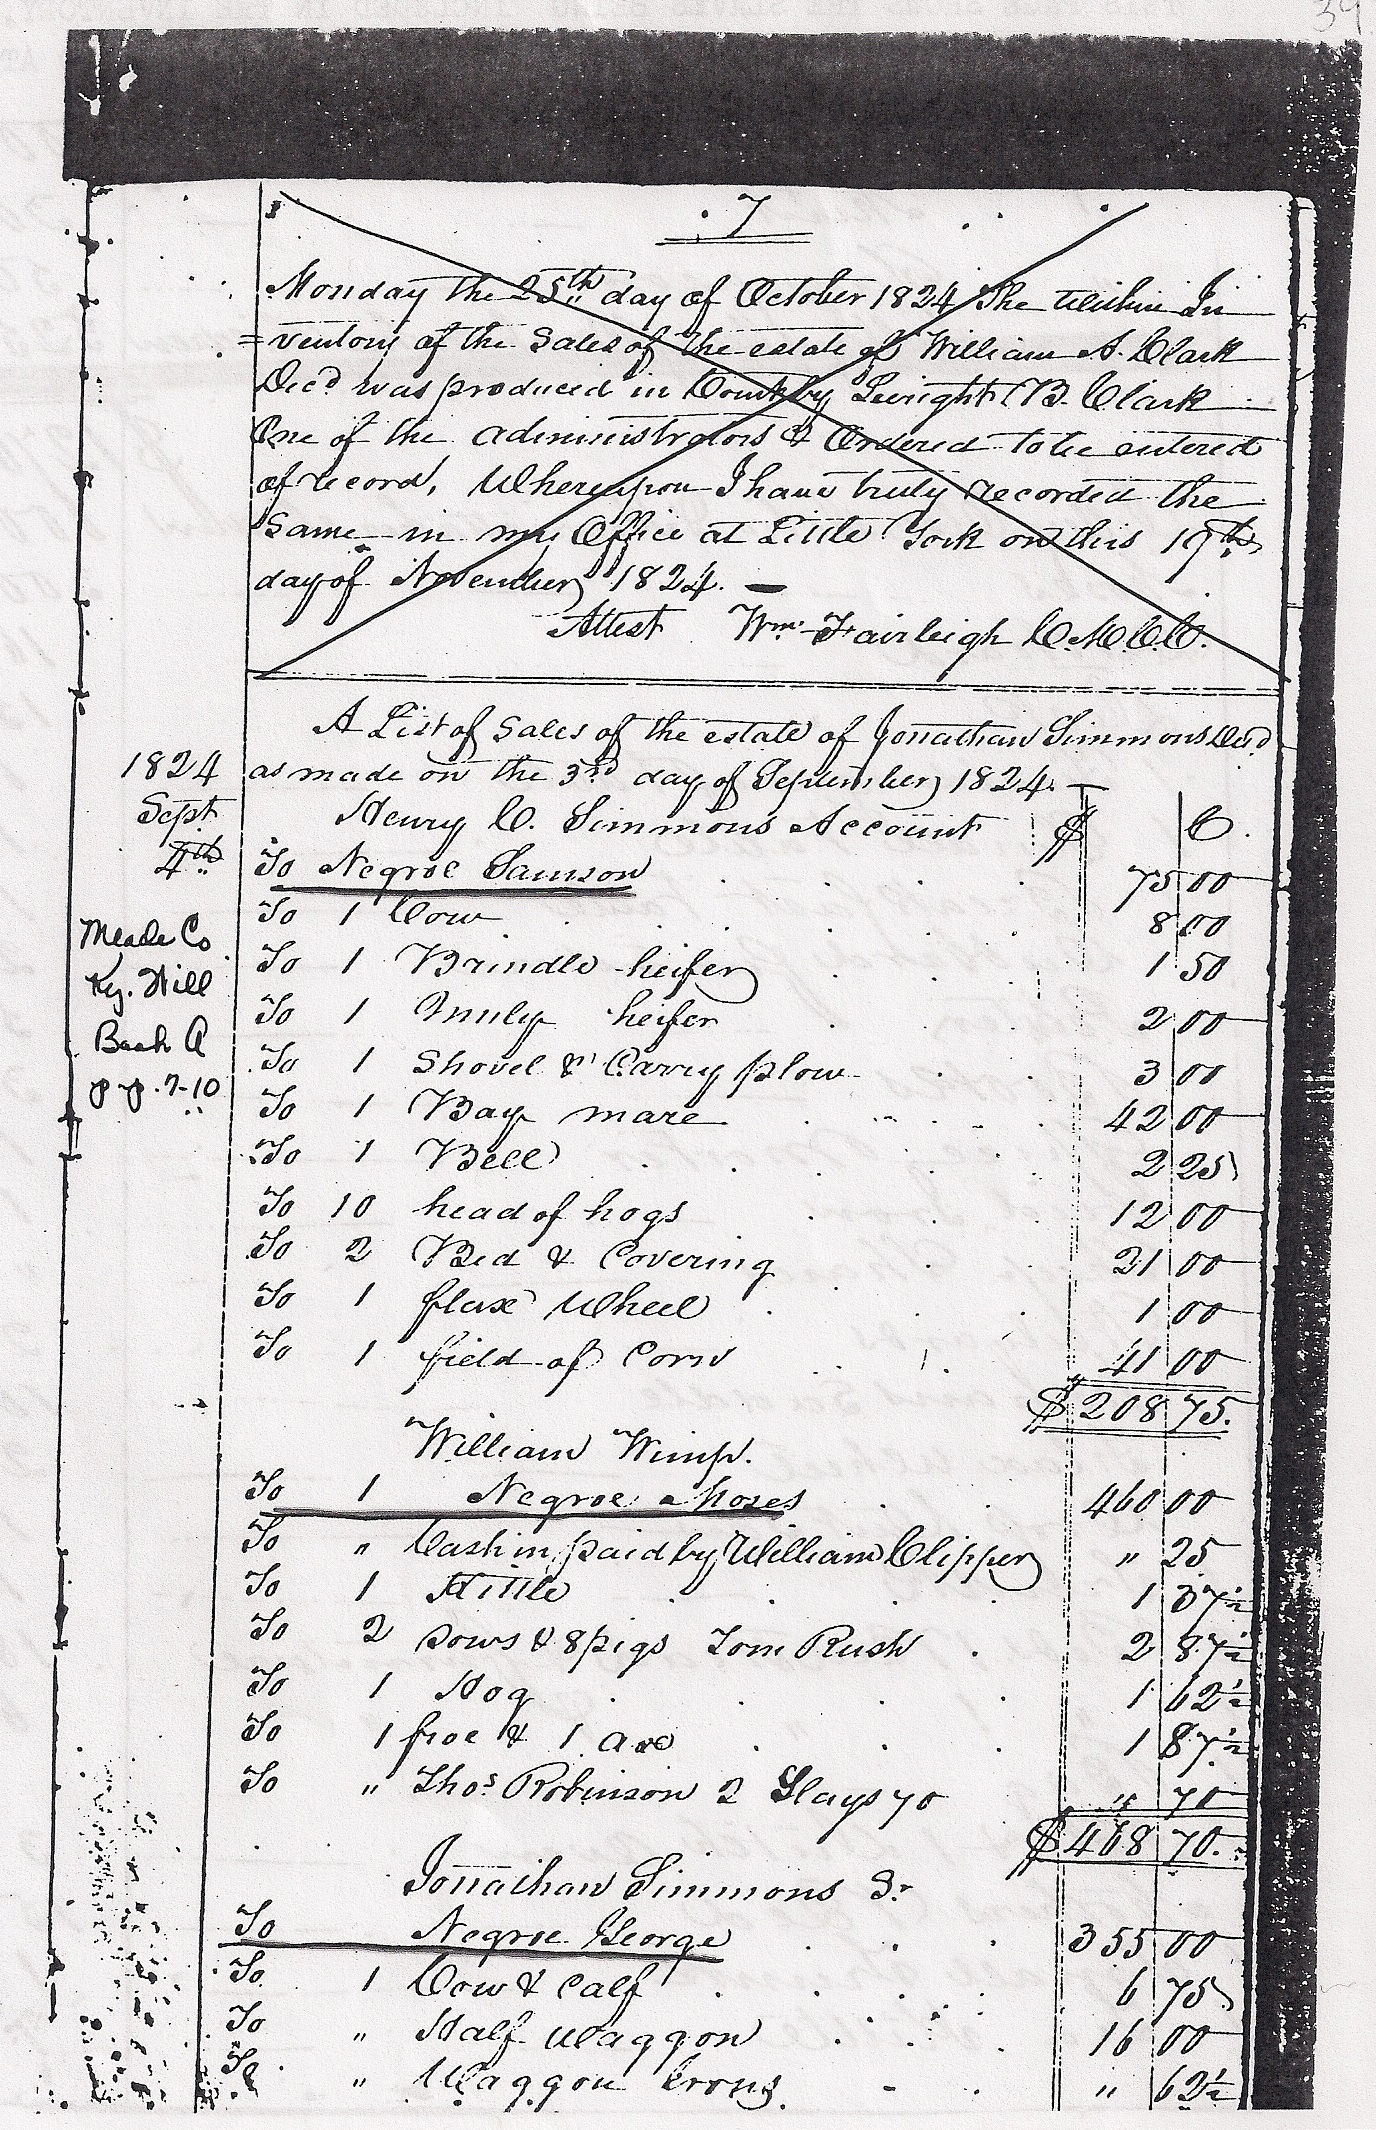 39
7
Monday the 25th day of October 1824 The within In
=ventory of the Sales of the estate of William A. Clark
Decd was produced in Court by B. Clark
One of the administrators & Ordered to be entered
of record, Whereupon I have truly recorded the
same in my Office at Little York on this 19th
day of November 1824. —
Attest Wm. Fairleigh C.M.C.C.
A List of Sales of the estate of Jonathan Simmons Decd
1824 as made on the 3rd day of September 1824.
Sept Henry C. Simmons Account $ C.
4th To Negroe Samson 75 00
To 1 Cow 8 00
Meade Co
To 1 Brindle heifer 1 50
Ky. Will
To 1 Muly heifer 2 00
Book A
To 1 Shovel & Carry plow 3 00
pp. 7-10
To 1 Bay mare 42 00
To 1 Bell 2 25
To 10 head of hogs 12 00
To 2 Bed & Covering 21 00
To 1 flax Wheel 1 00
To 1 field of Corn 41 00
$208 75.
William Wimp.
To 1 Negroe Moses 460 00
To " Cash in paid by William Clipper " 25
To 1 Kittle 1 37½
To 2 sows & 8 pigs Tom Rush 2 87½
To 1 Hog 1 62½
To 1 froe & 1 axe 1 87½
To " Thos Robinson 2 Slays 70 " 70
$468 70.
Jonathan Simmons Sr
To Negroe George 355 00
To 1 Cow & Calf 6 75
To " Half Waggon 16 00
To " Waggon Irons " 62½